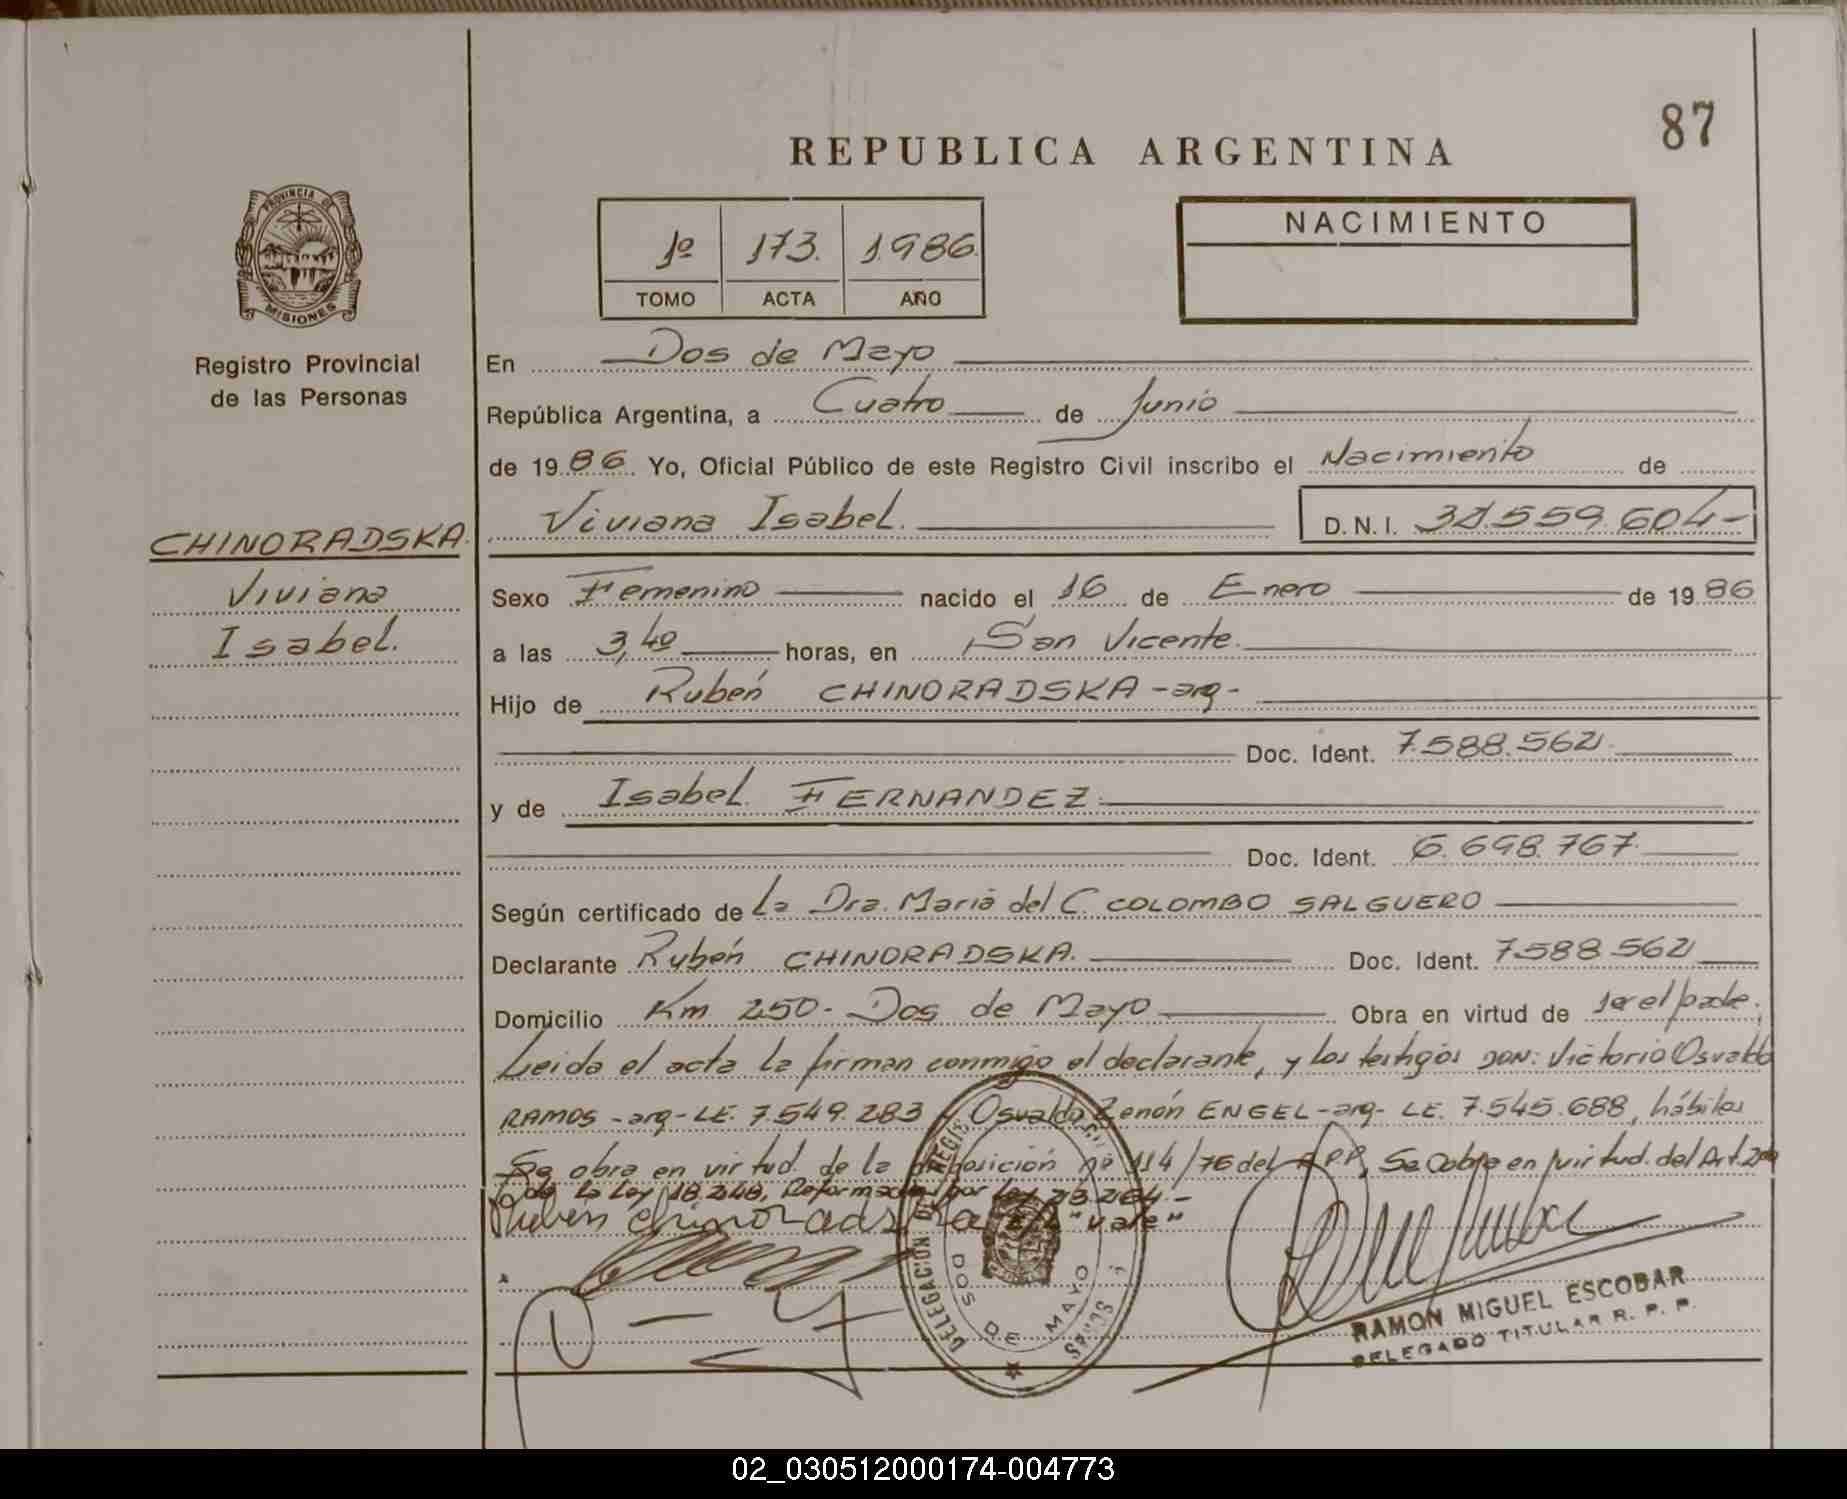 87
REPUBLICA ARGENTINA
PROVINCIA DE
MISIONES
Registro Provincial
de las Personas
1º 173. 1.986
TOMO ACTA AÑO
NACIMIENTO
En Dos de Mayo
República Argentina, a Cuatro de Junio
de 1986. Yo, Oficial Público de este Registro Civil inscribo el Nacimiento de
Viviana Isabel. D.N.I. 31.559.604-
CHINORADSKA.
Viviana
Isabel.
Sexo Femenino nacido el 16 de Enero de 1986
a las 3,40 horas, en San Vicente.
Hijo de Rubén CHINORADSKA -arg-
Doc. Ident. 7.588.562.
y de Isabel FERNANDEZ.
Doc. Ident. 6.698.767.
Según certificado de La Dra. Maria del C. COLOMBO SALGUERO
Declarante Rubén CHINORADSKA. Doc. Ident. 7.588.562
Domicilio Km 250.- Dos de Mayo Obra en virtud de ser el padre.
Leida el acta la firman conmigo el declarante, y los testigos DON: Victorio Osvaldo
RAMOS -arg- LE. 7.549.283 y Osvaldo Zenón ENGEL -arg- LE. 7.545.688, hábiles
Se obra en virtud de la disposición nº 114/76 del R.P.P, Se Cobra en virtud del Art. 2do
de la Ley 18.248, Reformada por Ley 23.264.-
Ruben chinoradska "Vale"
DELEGACION DEL REGIS
DOS DE MAYO
RAMON MIGUEL ESCOBAR
DELEGADO TITULAR R. P. P.
02_030512000174-004773